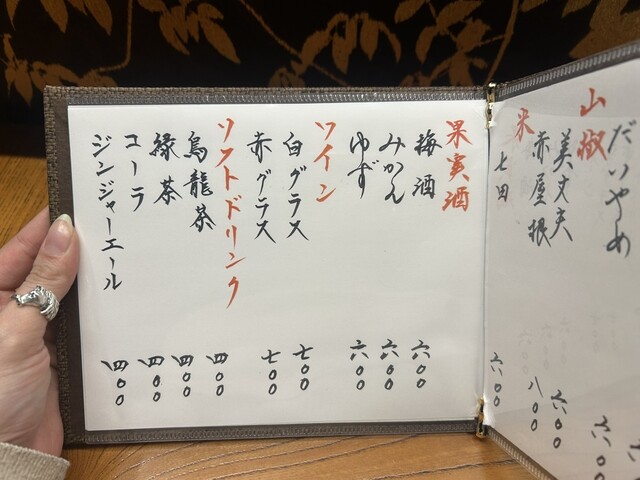 だいやめ
山椒
美丈夫 六〇〇
赤屋根 八〇〇
米
七田 六〇〇
果実酒
梅酒 六〇〇
みかん 六〇〇
ゆず 六〇〇
ワイン
白グラス 七〇〇
赤グラス 七〇〇
ソフトドリンク
烏龍茶 四〇〇
緑茶 四〇〇
コーラ 四〇〇
ジンジャーエール 四〇〇